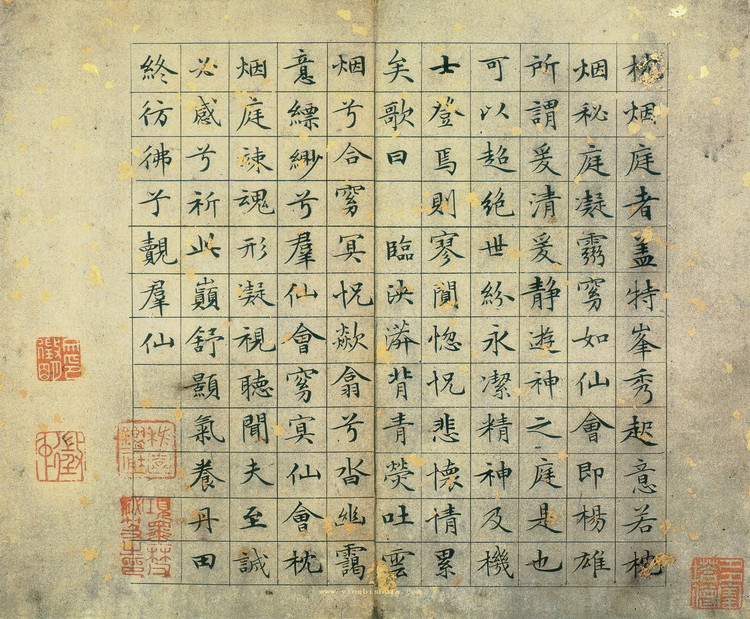 枕烟庭者盖特峯秀起意若枕
烟秘庭凝窅如仙會即楊雄
所謂爰清爰静遊神之庭是也
可以超絕世紛永潔精神及機
士登焉則寥闃惚怳悲懷情累
矣歌曰 臨泱漭背青熒吐雲
烟兮合窅冥怳欻翕兮沓幽靄
意縹緲兮羣仙會窅冥仙會枕
烟庭竦魂形凝視聽聞夫至誠
必感兮祈此巔舒顥氣養丹田
終彷彿兮覿羣仙
項墨林祕笈之印
www.yingbishufa.com